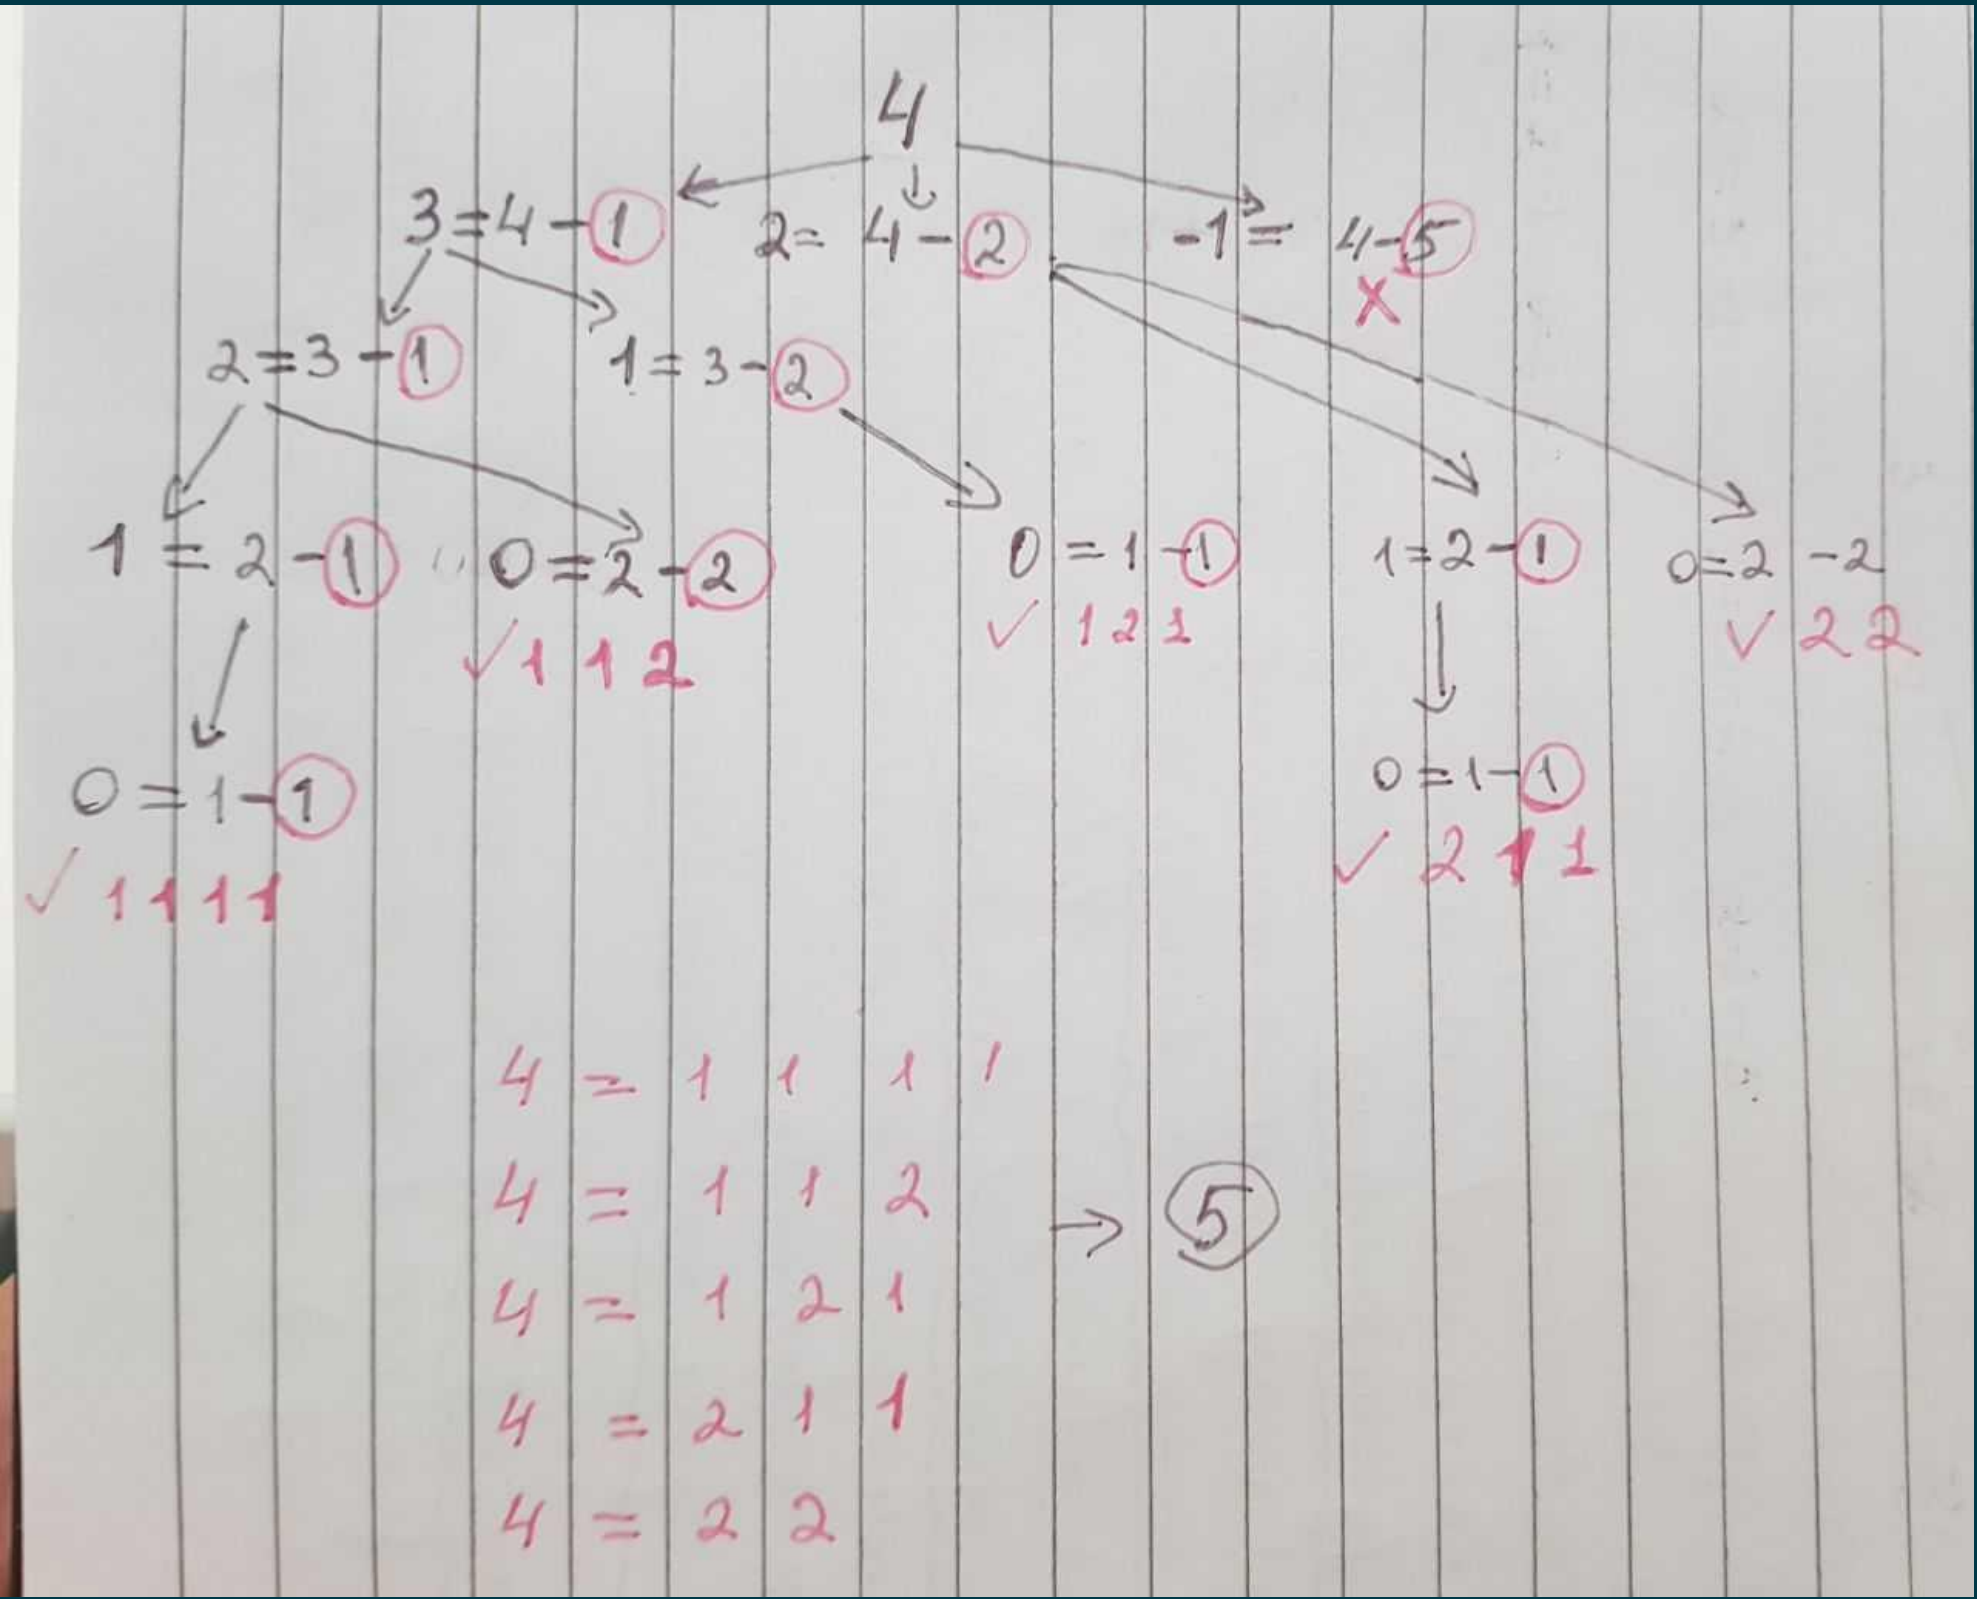 4
3 = 4 - 1 2 = 4 - 2 -1 = 4 - 5
X
2 = 3 - 1 1 = 3 - 2
1 = 2 - 1 0 = 2 - 2 0 = 1 - 1 1 = 2 - 1 0 = 2 - 2
✓ 1 1 2 ✓ 1 2 1 ✓ 2 2
0 = 1 - 1 0 = 1 - 1
✓ 1 1 1 1 ✓ 2 1 1
4 = 1 1 1 1
4 = 1 1 2 → 5
4 = 1 2 1
4 = 2 1 1
4 = 2 2